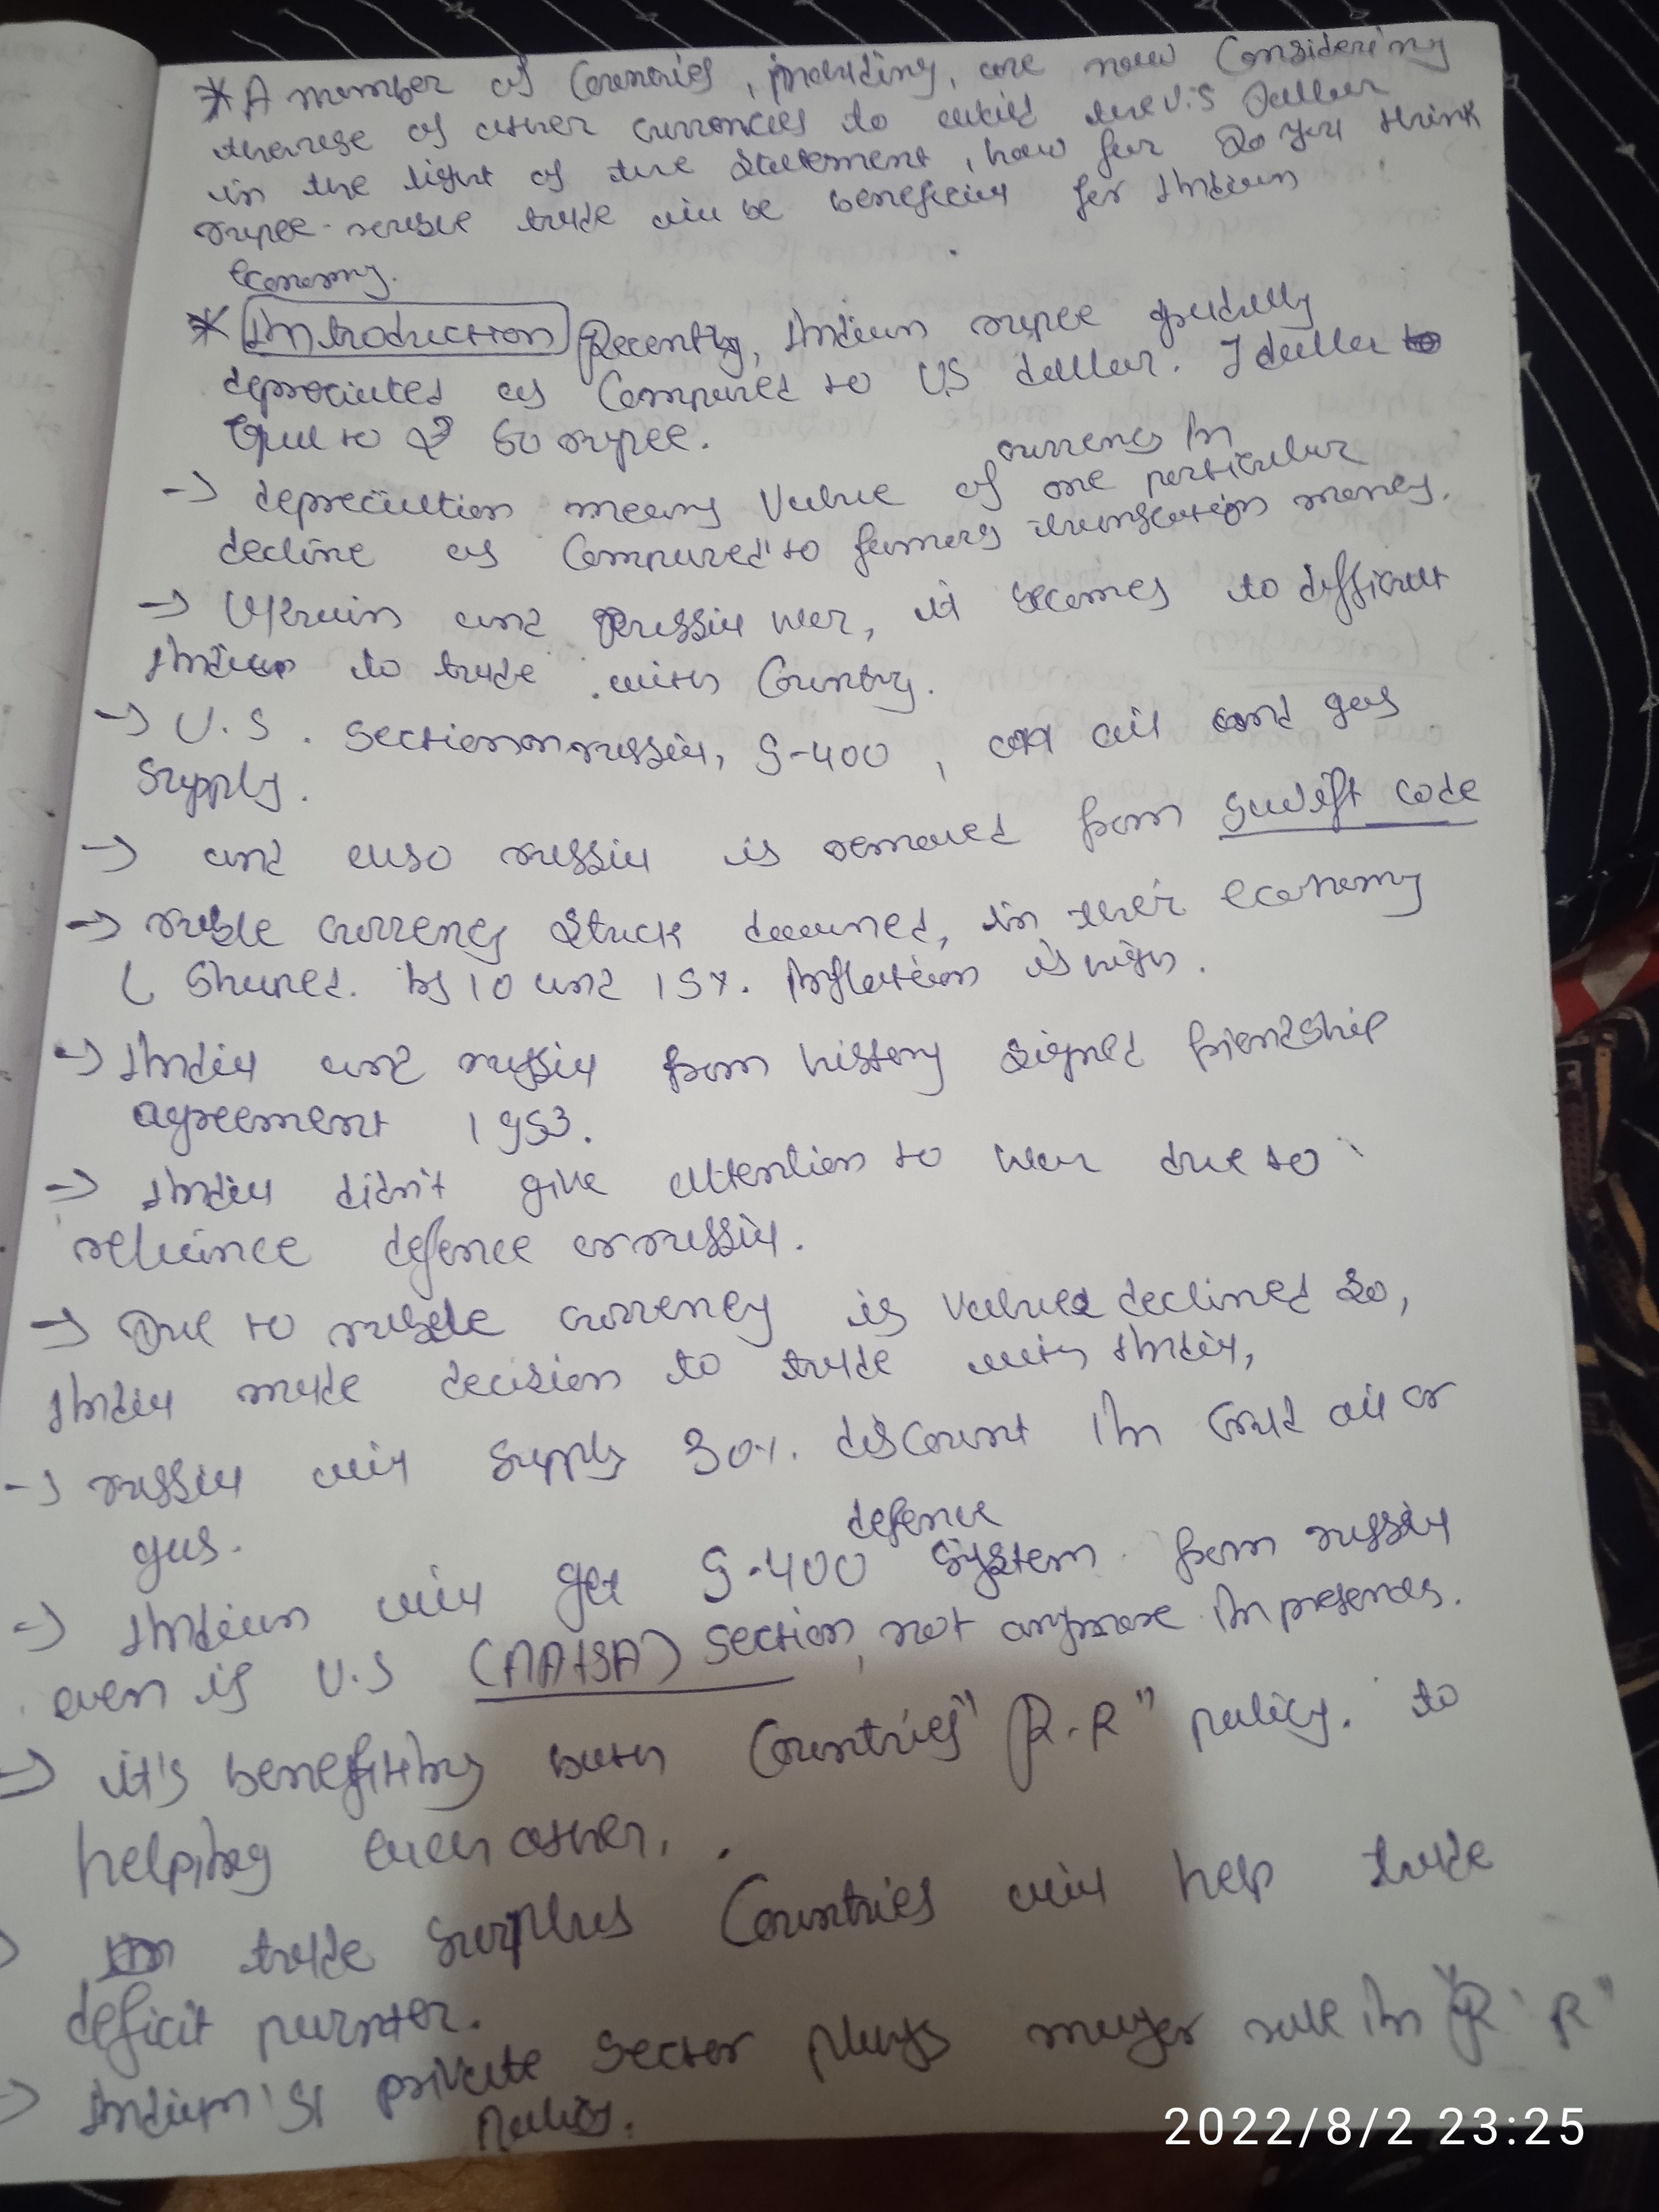 * A member of Countries, including, are now Considering
the use of other currencies to avoid the U.S Dollar
in the light of the Statement, how far Do you think
rupee-rouble trade will be beneficial for Indian
Economy.
* Introduction Recently, Indian rupee gradully
depreciated as Compared to US dollar. 1 dollar
Equal to 80 rupee.
currency in
-> depreciation means Value of one particular
decline as Compared to money.
-> Ukrain and Russia war, it becomes to difficult
Indian to trade with Country.
-> U.S. Section on russia, S-400, oil and gas
Supply.
-> and also russia is removed from Swift code
-> ruble currency Stuck downed, in their economy
( by 10 and 15%. Inflation is high.
-> India and russia from history signed friendship
agreement 1953.
-> India didn't give attention to war due to
reliance defence on russia.
-> Due to ruble currency is Value declined So,
India made decision to trade with India,
-> russia will Supply 30%. discount In Crud oil or
gas.
defence
-> Indian will get S-400 System from russia
even if U.S (AATSA) Section, not anymore In presences.
-> it's benefitting both Countries "R-R" policy. to
helping each other.
trade Surplus Countries will help trade
deficit partner.
-> Indian's private Sector plays major role in "R-R"
Policy.
2022/8/2 23:25